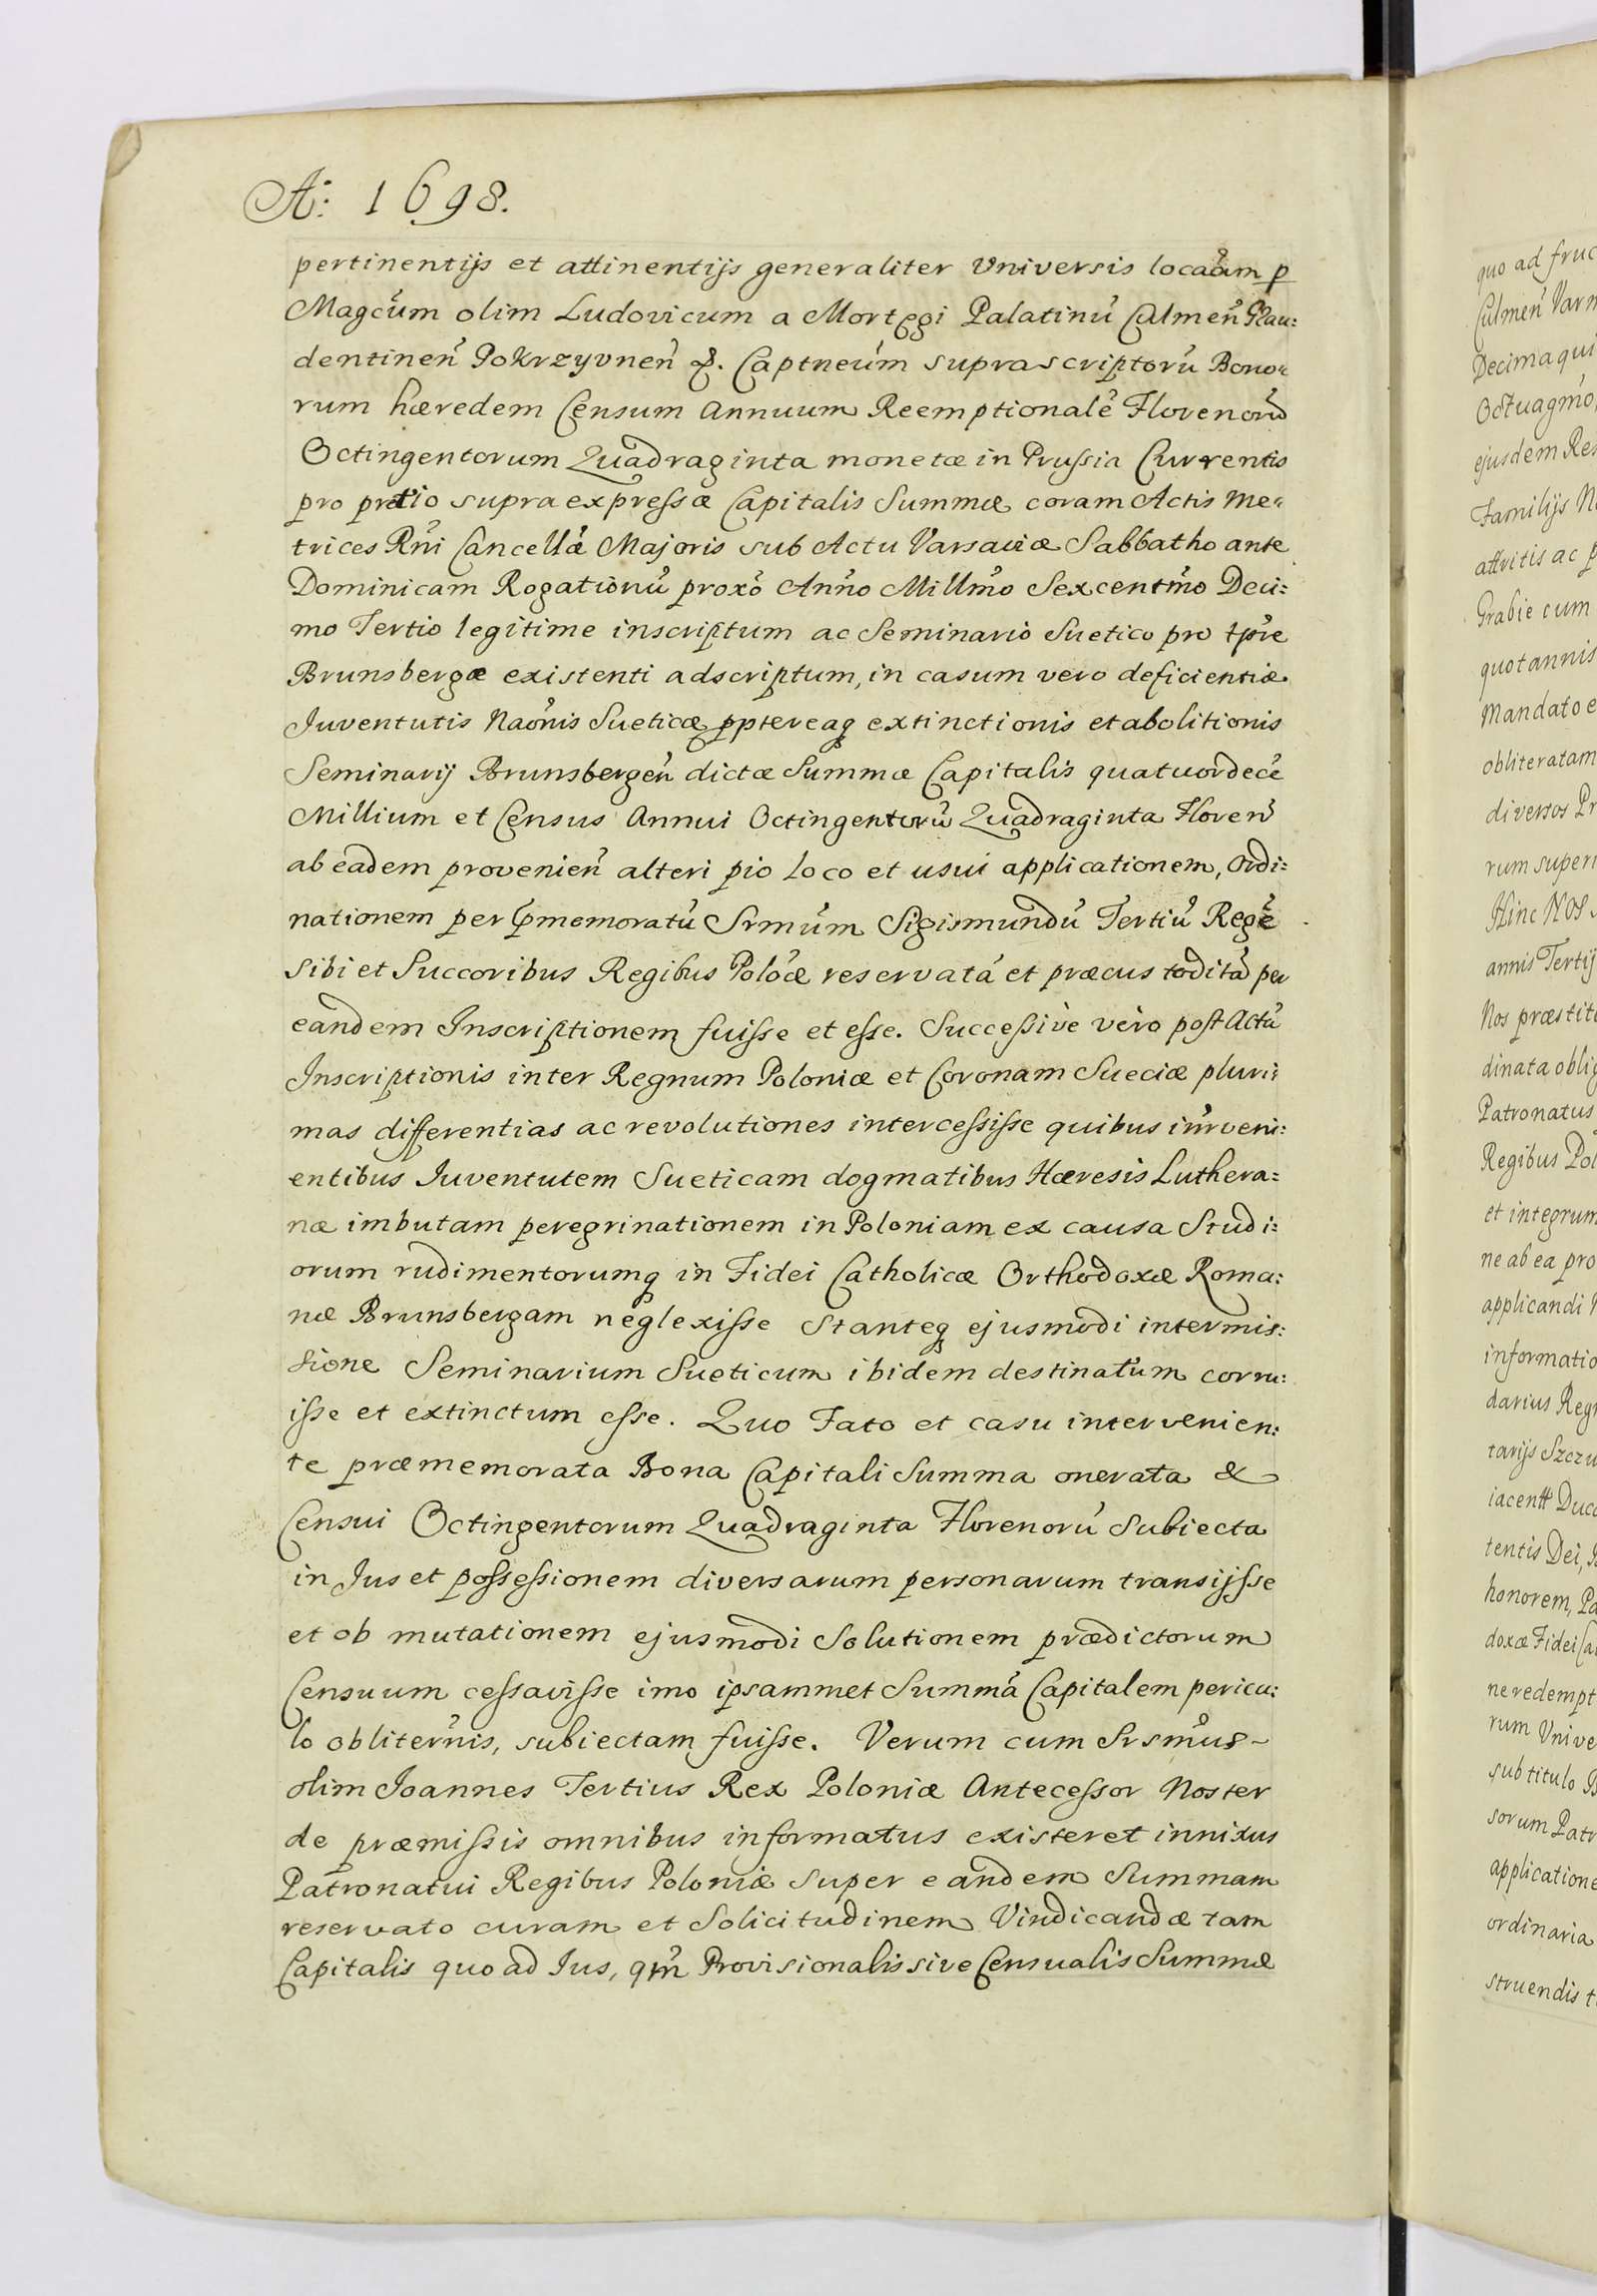 A: 1698.
pertinentijs et attinentijs generaliter Universis locatam p
Magcum olim Ludovicum a Mortęgi Palatinũ Culmeñ Grau:
dentineñ Pokrzyvneñ &. Captneum suprascriptorũ Bono:
rum hæredem Censum Annuum Reemptionalẽ Florenorũ
Octingentorum Quadraginta monetæ in Prussia Currentis
pro pretio supra expressæ Capitalis Summæ coram Actis Me:
trices Rñi Cancellæ Majoris sub Actu Varsaviæ Sabbatho ante
Dominicam Rogationũ proxõ Anño Millmo Sexcentmo Deci:
mo Tertio legitime inscriptum ac Seminario Suetico pro tpre
Brunsbergæ existenti adscriptum, in casum vero deficientiæ
Juventutis Naõnis Sueticæ pptereaq extinctionis et abolitionis
Seminarij Brunsbergeñ dictæ Summæ Capitalis quatuordecẽ
Millium et Census Annui Octingentorũ Quadraginta Floreñ
ab eadem provenieñ alteri pio loco et usui applicationem, Ordi:
nationem per pmemoratũ Srmũm Sigismundũ Tertiũ Regẽ
sibi et Succoribus Regibus Polõæ reservatã et præcustoditã per
eandem Inscriptionem fuisse et esse. Successive vero post Actũ
Inscriptionis inter Regnum Poloniæ et Coronam Sueciæ pluri:
mas differentias ac revolutiones intercessisse quibus intrveni:
entibus Juventutem Sueticam dogmatibus Hæresis Luthera:
næ imbutam peregrinationem in Poloniam ex causa Studi:
orum rudimentorumq in Fidei Catholicæ Orthodoxæ Roma:
næ Brunsbergam neglexisse stanteq ejusmodi intermis:
sione Seminarium Sueticum ibidem destinatum corru:
isse et extinctum esse. Quo Fato et casu intervenien:
te præmemorata Bona Capitali Summa onerata &
Censui Octingentorum Quadraginta Florenorũ subiecta
in Jus et possessionem diversarum personarum transijsse
et ob mutationem ejusmodi Solutionem prædictorum
Censuum cessavisse imo ipsammet Summã Capitalem pericu:
lo obliterñis, subiectam fuisse. Verum cum Srsmũs
olim Joannes Tertius Rex Poloniæ Antecessor Noster
de præmissis omnibus informatus existeret innixus
Patronatui Regibus Poloniæ super eandem Summam
reservato curam et Solicitudinem Vindicandæ tam
Capitalis quo ad Ius, qm̃ Provisionalis sive Censualis Summæ
quo ad fruc
Culmeñ Varm
Decima qui
Octuagmo
ejusdem Res
Familijs
attritis ac p
Grabie cum
quotannis
Mandato e
obliteratam
diversos Pr
rum superi
Hinc NOS
annis Tertij
Nos præstit
dinata oblig
Patronatus
Regibus Pol
et integrum
ne ab ea pro
applicandi
informatio
darius Regn
tarijs Szczu
iacentt Duca
tentis Dei,
honorem, Pa
doxæ Fidei Ca
ne redempt
rum Unive
sub titulo B
sorum Patr
applicatione
ordinaria
struendis t